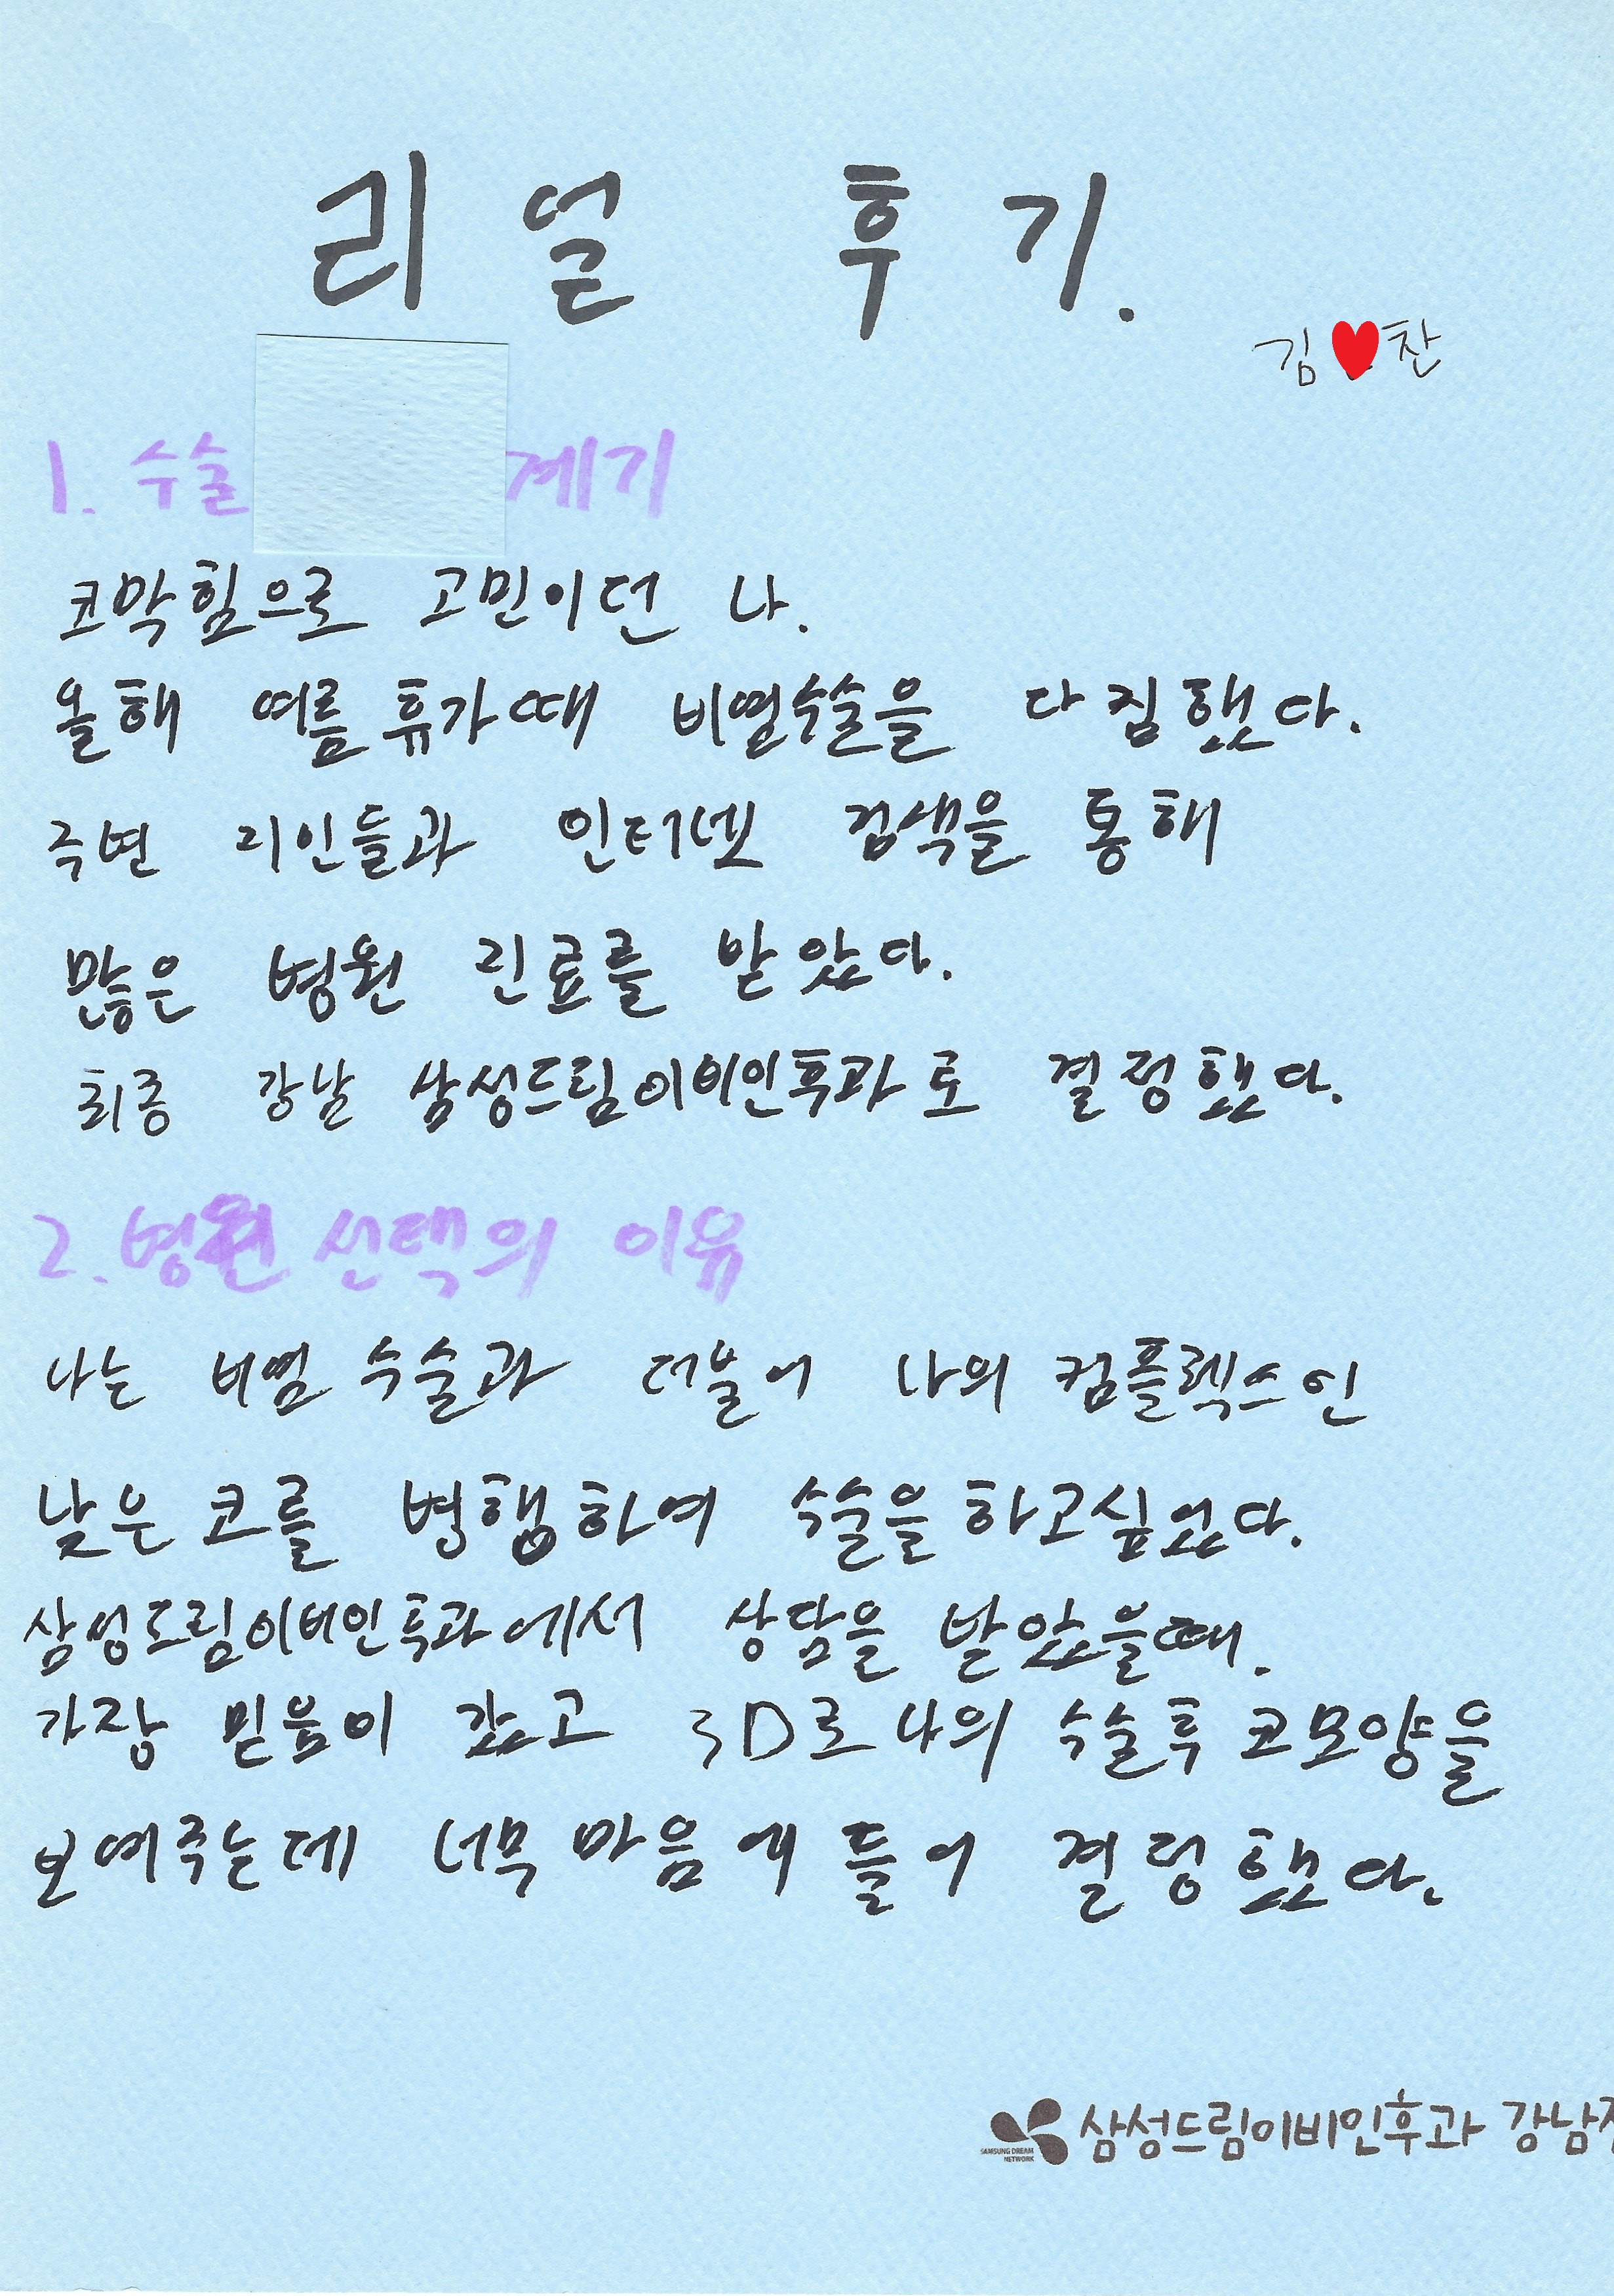 리얼 후기.
김♥찬
1. 수술 계기
코막힘으로 고민이던 나.
올해 여름휴가때 비염수술을 다짐했다.
주변 지인들과 인터넷 검색을 통해
많은 병원 진료를 받았다.
최종 강남 삼성드림이비인후과로 결정했다.
2. 병원 선택의 이유
나는 비염수술과 더불어 나의 컴플렉스인
낮은 코를 병행하여 수술을 하고싶었다.
삼성드림이비인후과에서 상담을 받았을때.
가장 믿음이 갔고 3D로 나의 수술후 코모양을
보여주는데 너무 마음에 들어 결정했다.
삼성드림이비인후과 강남점
SAMSUNG DREAM
NETWORK